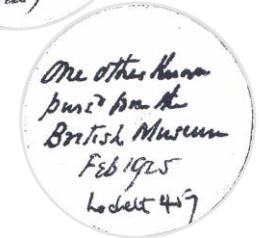 One other known
purc'd from the
British Museum
Feb 1925
Lockett 457